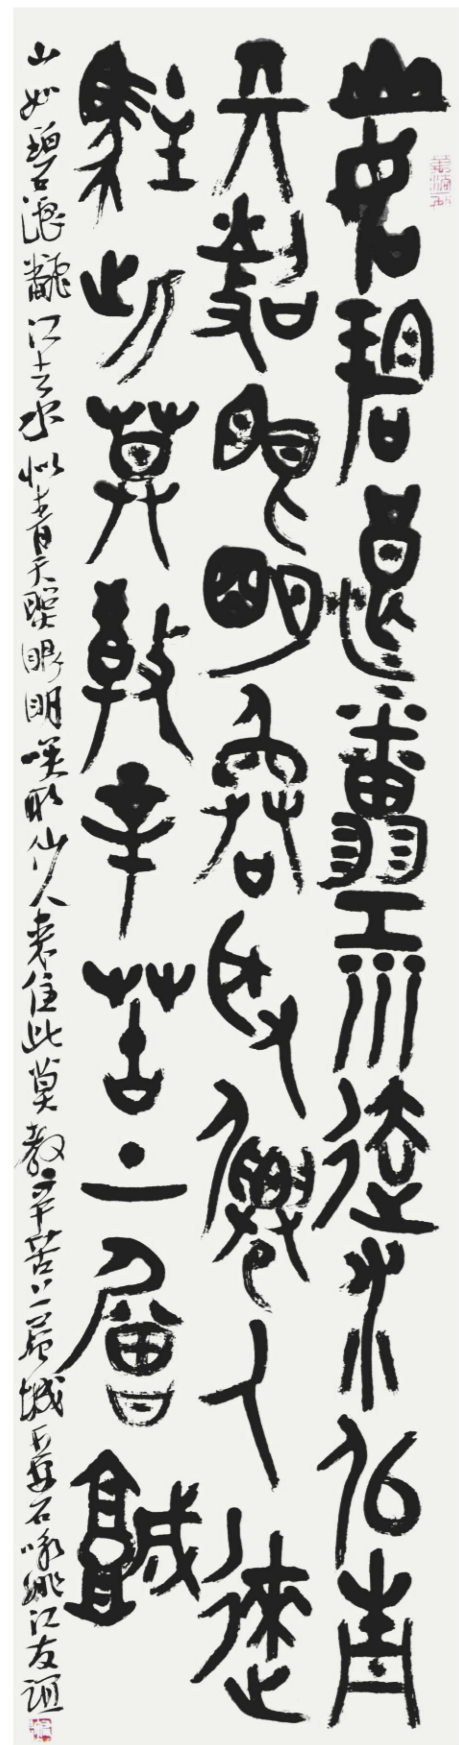 山如碧浪翻江去水似青
天照眼明喚取僊人來
駐此莫教辛苦上層城
山如碧浪翻江去水似青天照眼明喚取仙人来住此莫教辛苦上层城王安石咏姚江友谊